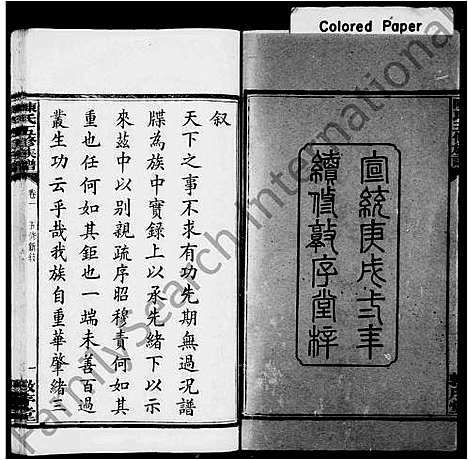 Colored Paper
宣統庚戌二年
續修敦序堂梓
叙
天下之事不求有功先期無過况譜
牒為族中實錄上以承先緒下以示
來茲中以别親疏序昭穆責何如其
重也任何如其鉅也一端未善百過
叢生功云乎哉我族自重華肇緒三
陳氏五修族譜
卷一
五修新叙
一
敦序堂
FamilySearch International